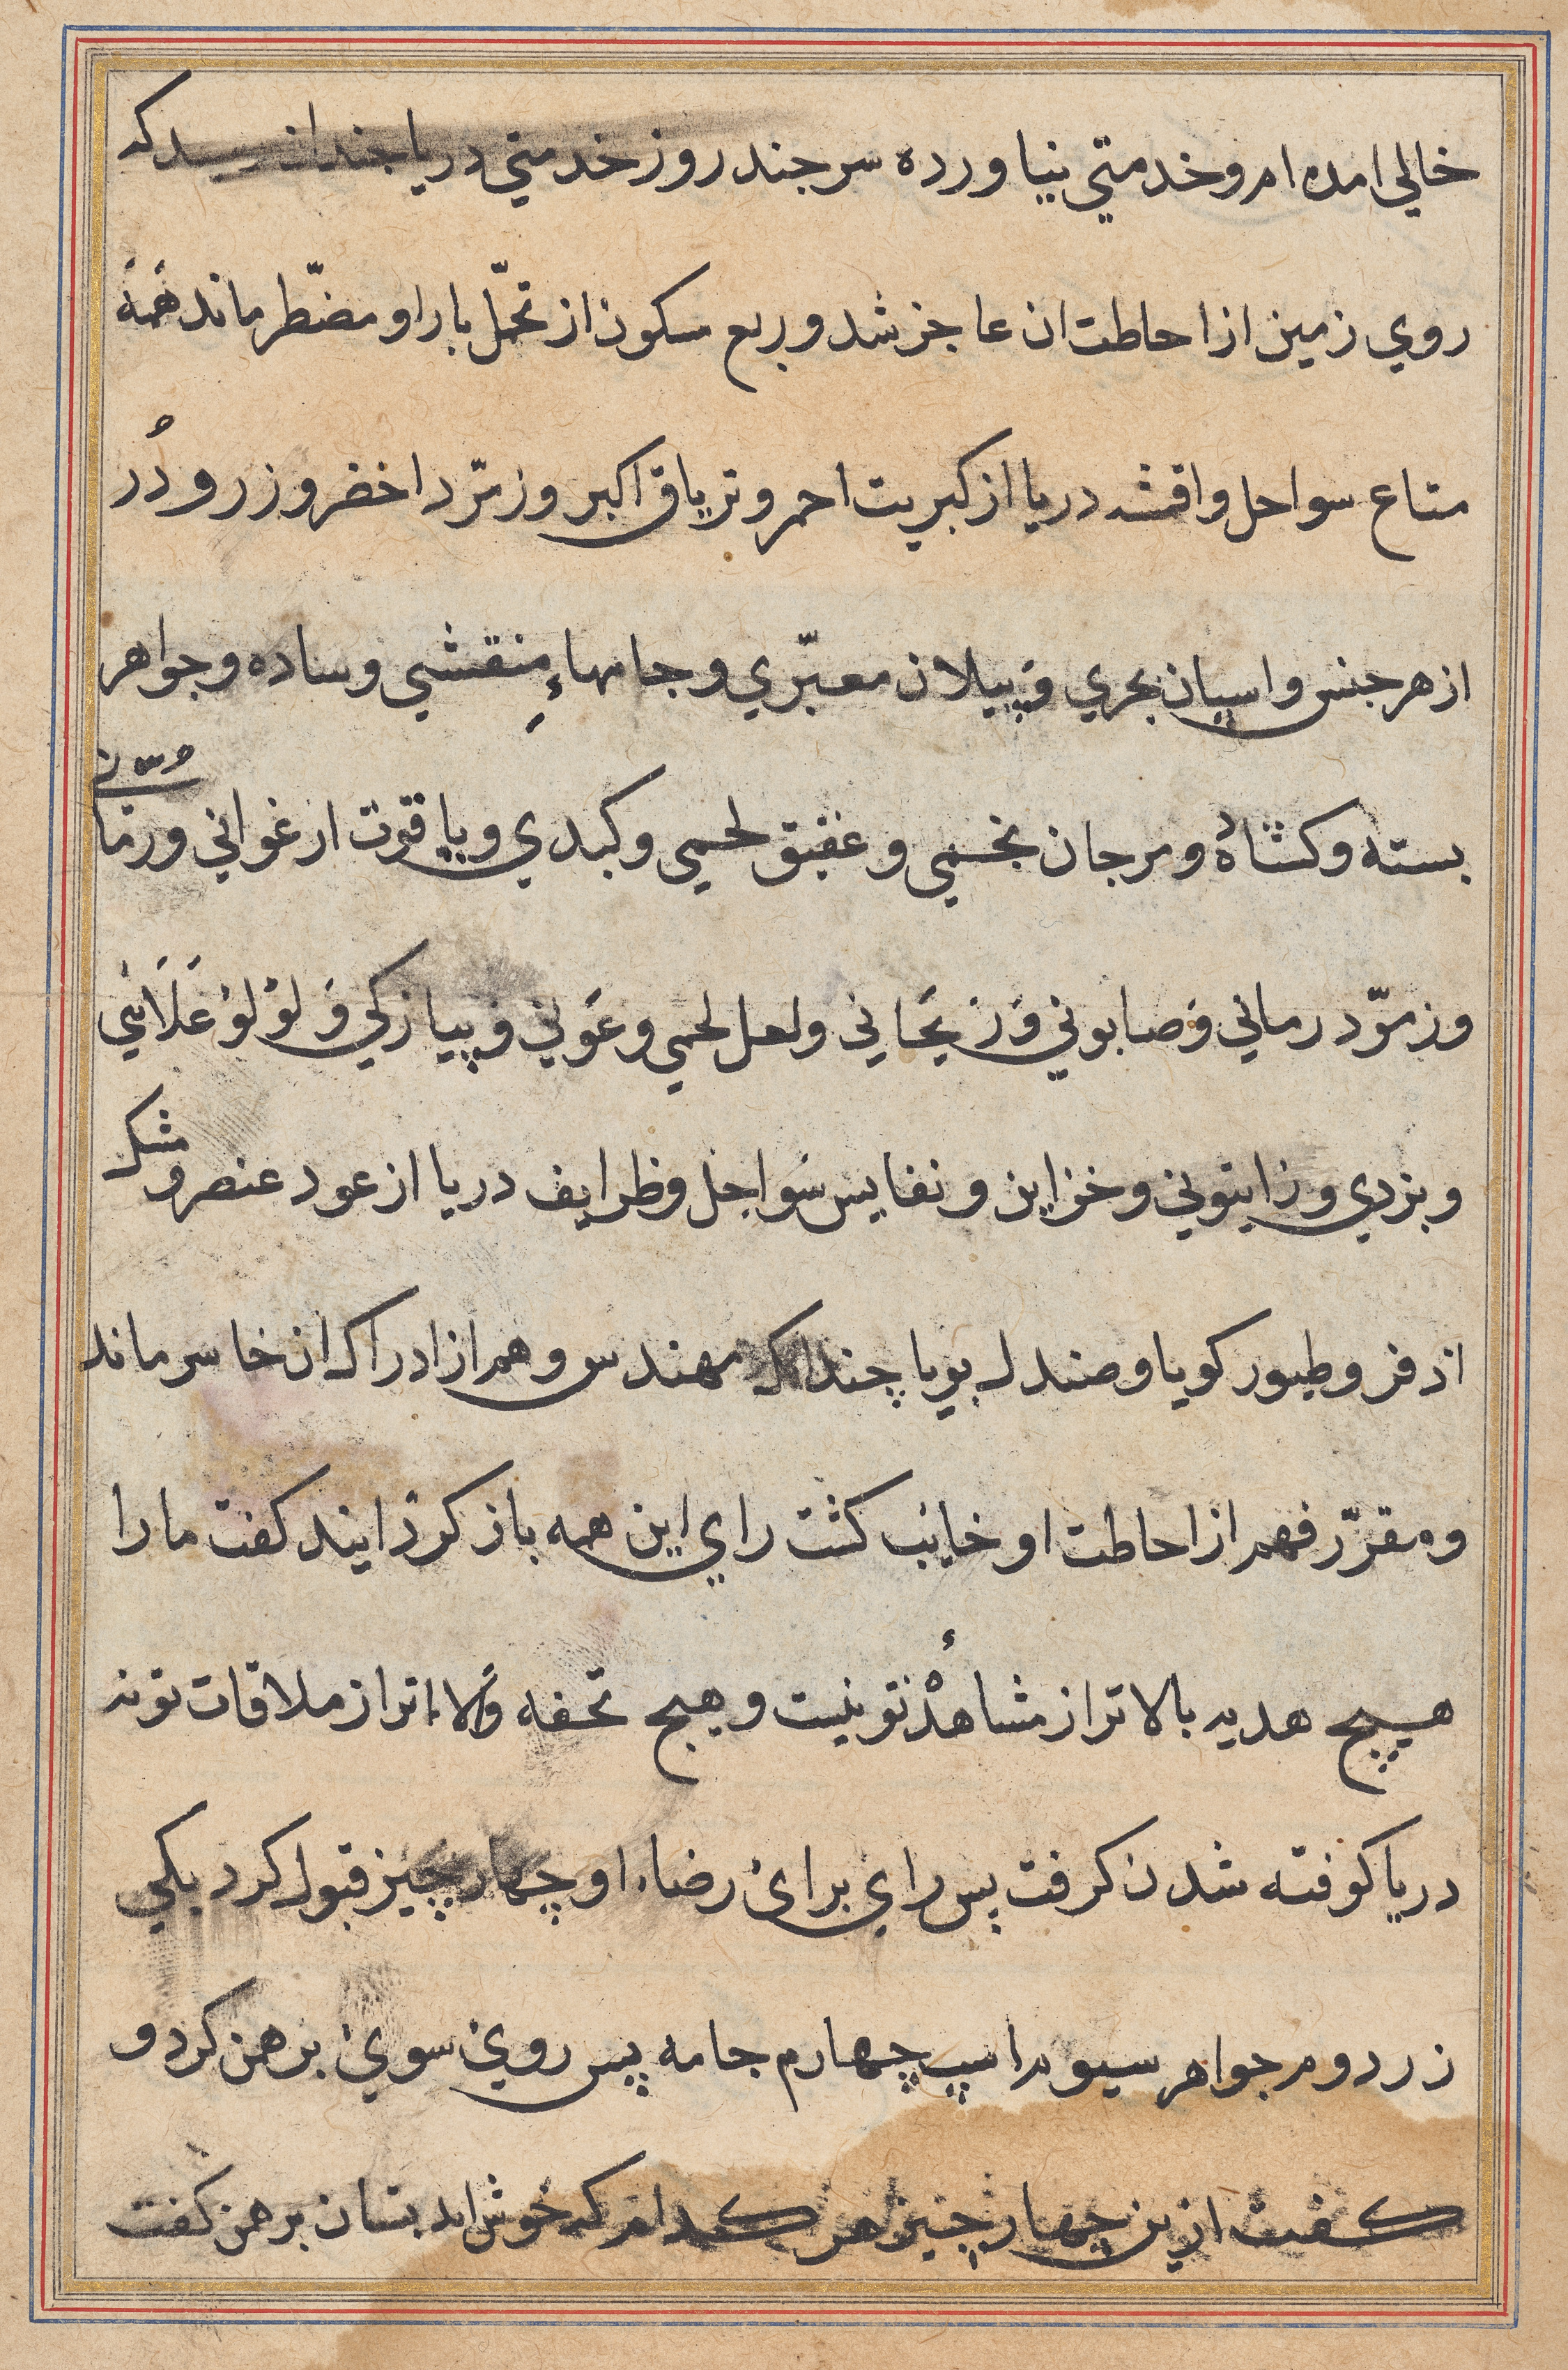 خالي امده ام و خدمتي نياورده سر جند روز خدمتي دريا جندان رسيد كه
روي زمين از احاطت ان عاجز شد و ربع سكون از تحمّل بار او مضّطر ماند همه
متاع سواحل و اقمشه دريا از كبريت احمر و ترياق اكبر و زمرّد اخضر و زر و دُر
از هر جنس و اسپان بحري و پيلان معبّري و جامهاءِ منقشي و ساده و جواهر
بسته و كشاده و مرجان نجسمي و عقيق لحمي و كبدي و ياقوت ارغواني و رماني
وزمرّد رماني و صابوني و زيحاني و لعل لحمي و عَولي و پيازكي و لؤلؤ عَلَاني
و بزدي و زايتوني و خزاين و نفايس سواحل و ظرايف دريا از عود عنصر و مشك
اذفر و طيور كويا و صندل بويا چندانكه مهندس وهم از ادراك ان خاسر ماند
و مقرّر فهم از احاطت او خايب كشت راي اين همه باز كردانيد كفت ما را
هيچ هديه بالاتر از مشاهدهٔ تو نيست و هيچ تحفه والاتر از ملاقات تو نه
دريا كوفته شدن كرفت پس راي براي رضاء او چهار چيز قبول كرد يكي
زر دوم جواهر سيوم اسپ چهارم جامه پس روي سوي برهمن كرد و
كفت ازين چهار چيز هر كدام كه خوش ايد بستان برهمن كفت